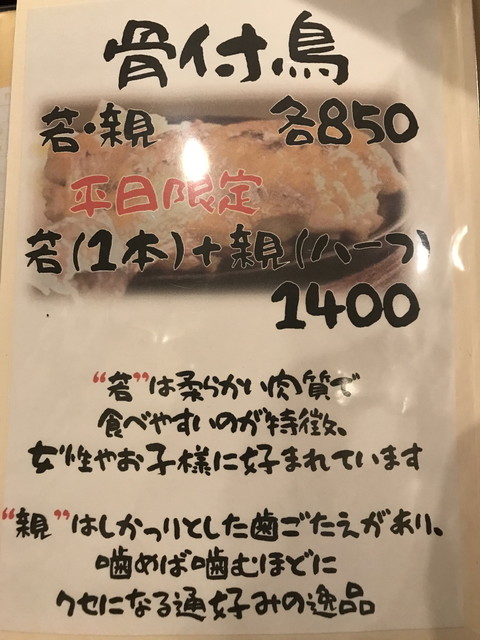 骨付鳥
若・親 各850
平日限定
若(1本)+親(ハーフ)
1400
“若”は柔らかい肉質で
食べやすいのが特徴。
女性やお子様に好まれています
“親”はしかっりとした歯ごたえがあり。
噛めば噛むほどに
クセになる通好みの逸品